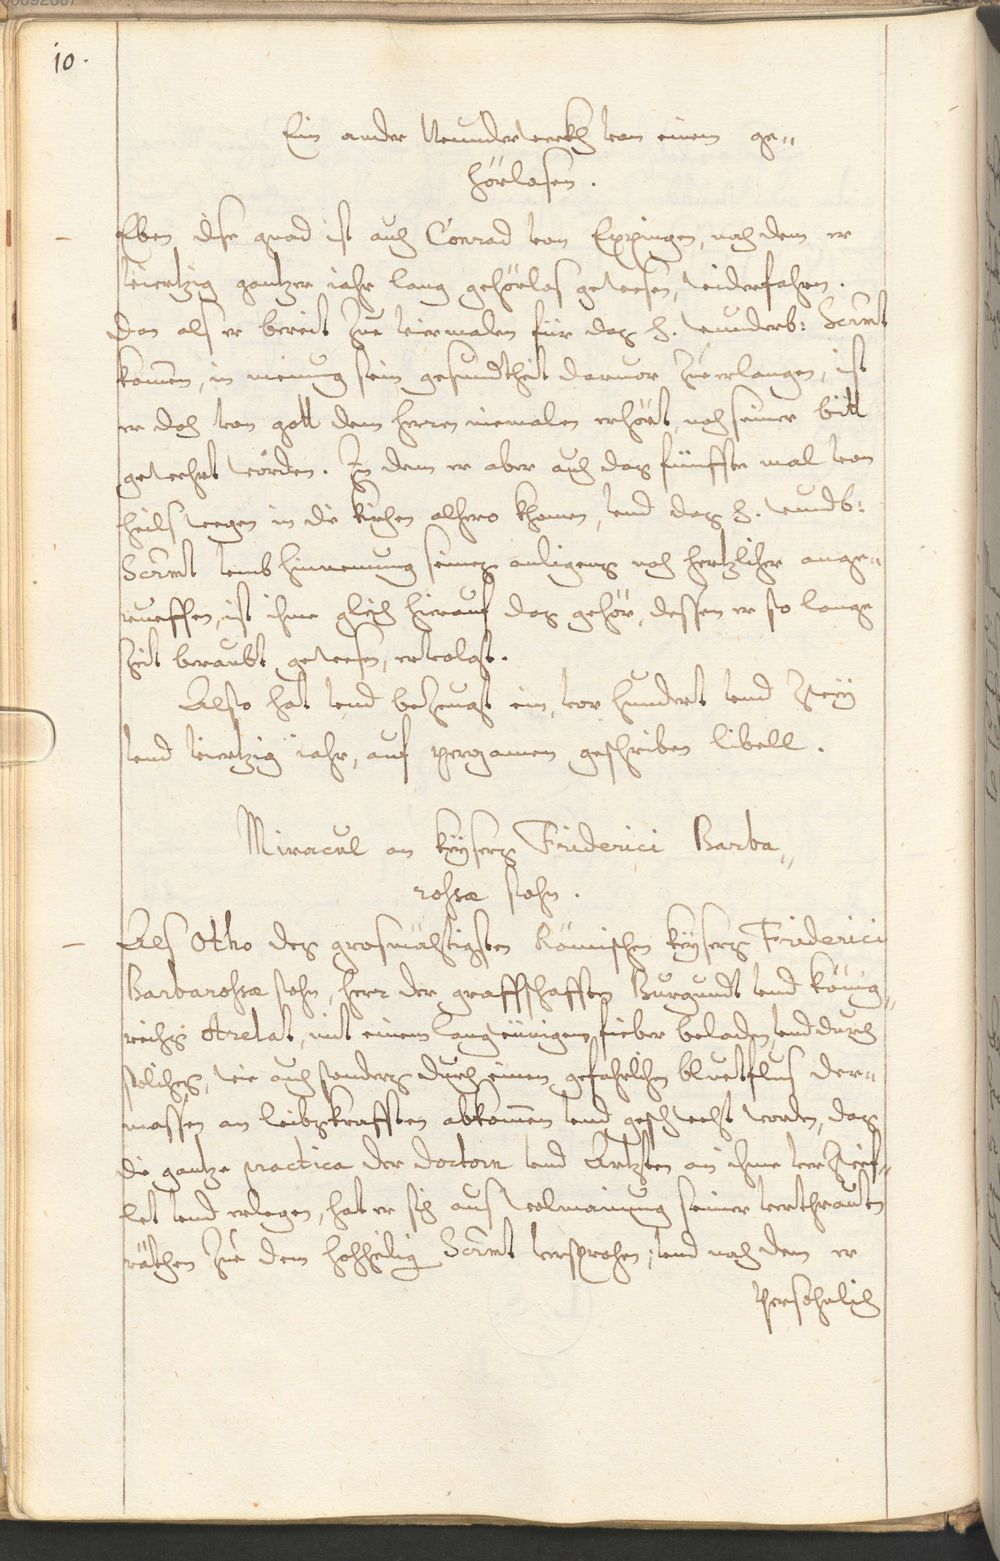 10.
Ein ander Wunderwerkh von einem ge„
hörlosen.
Eben dise gnad ist auch Conrad von Eppingen, nach dem er
viertzig gantzer iahr lang gehörlos gewesen, widerfahren.
Dan als er bereit zue viermalen für das H. wunderb: Scrmt
kom̃en, in meinung sein gesundtheit daruor zue erlangen, ist
er doch von gott dem herren niemalen erhört, noch seiner bitt
gewehrt worden. In dem er aber auch das fünffte mal von
heils wegen in die kirchen alhero khomen, vnd das H. wundb:
Scrmt vmb hinnemung seines anligens noch hertzlicher ange„
rueffen, ist ihme glich hierauf das gehör, dessen er so lange
zeit beraubt gewesen, ervolgt.
Also hat vnd bezeugt ein, vor hundert vnd zweÿ
vnd viertzig iahr, auf pergamen geschriben libell.
Miracul an keÿsers Friderici Barba„
rossæ sohn.
Als Otho des grosmächtigsten Römischen keÿsers Friderici
Barbarossæ sohn, herr der graffschafften Burgundt vnd König„
reichs Arelat, mit einem langwürigem fieber beladen, vnd durch
solches, wie auch sonders durch einen gefahrlichen bluetflus der„
massen an leibskrafften abkom̃en vnd geschwecht worden, das
die gantze practica der doctorn vnd Artzten an ihme verzweif„
let vnd erlegen, hat er sich aus wolmainung seiner verthrauten
räthen zue dem hochheilig Scrmt versprochen; vnd nach dem er
persohnlich